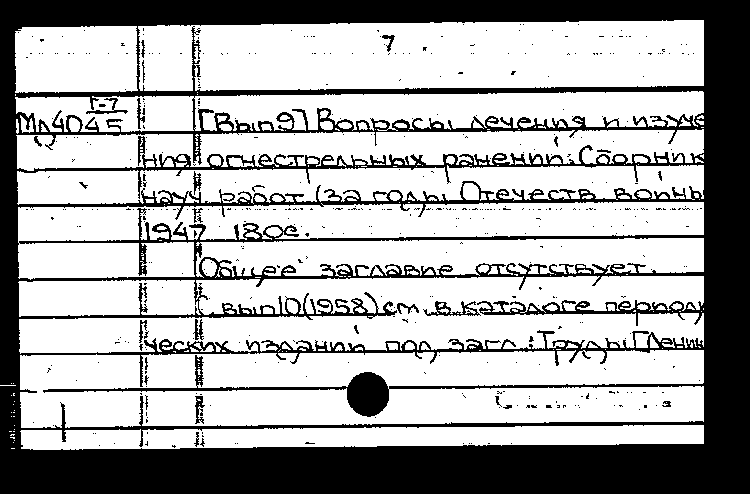 7
Г-7
Мл4045 [Вып9] Вопросы лечения и изуче
ния огнестрельных ранений: Сборник
науч работ (за годы Отечеств войны
1947 180с.
Общее заглавие отсутствует.
С вып10(1958)см. в каталоге периоди
ческих изданий под загл.: Труды [Ленин